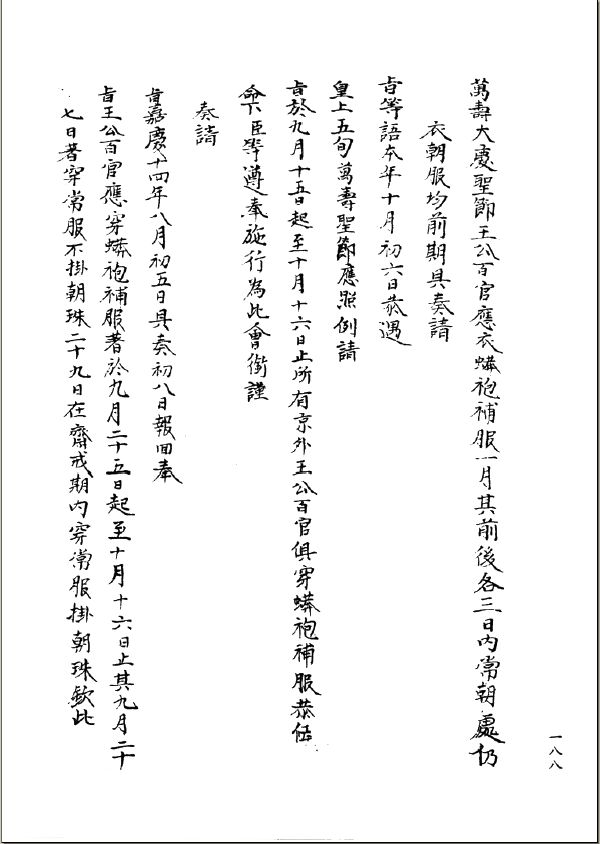 萬壽大慶聖節王公百官應衣蟒袍補服一月其前後各三日內常朝處仍
衣朝服均前期具奏請
旨等語本年十月初六日恭遇
皇上五旬萬壽聖節應照例請
旨於九月十五日起至十月十六日止所有京外王公百官俱穿蟒袍補服恭候
命下臣等遵奉施行為此會銜謹
奏請
旨嘉慶十四年八月初五日具奏初八日報回奉
旨王公百官應穿蟒袍補服著於九月二十五日起至十月十六日止其九月二十
七日著穿常服不掛朝珠二十九日在齋戒期內穿常服掛朝珠欽此
一八八